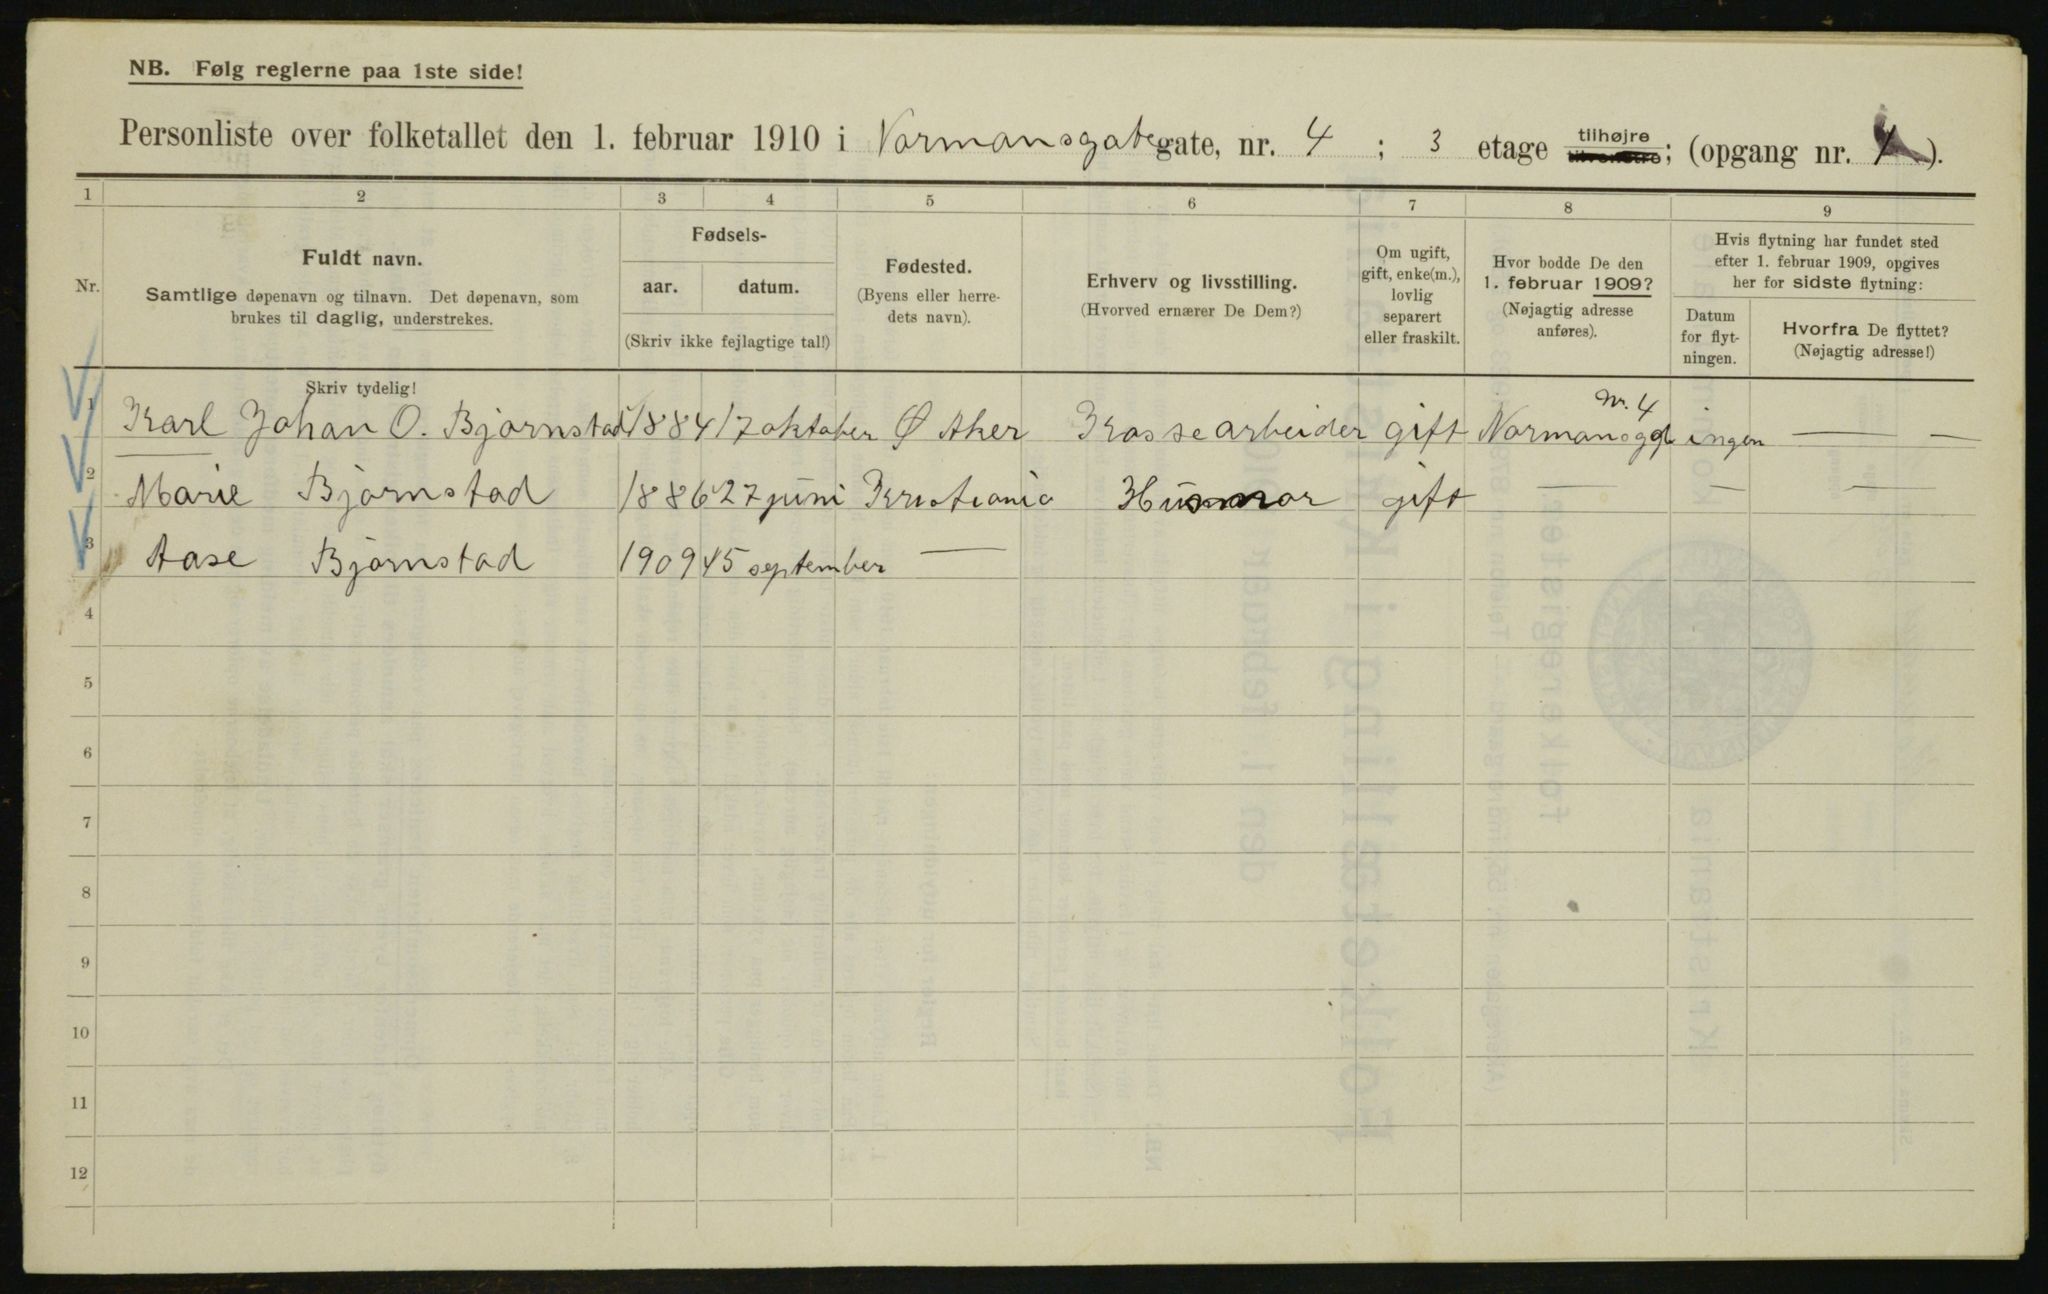 NB. Følg reglerne paa 1ste side!
Personliste over folketallet den 1. februar 1910 i Normansgate gate, nr. 4 ; 3 etage tilhøjre tilvenstre; (opgang nr. 1 ).
1 2 3 4 5 6 7 8 9
Nr.
Fuldt navn.
Samtlige døpenavn og tilnavn. Det døpenavn, som
brukes til daglig, understrekes.
Skriv tydelig!
Fødsels-
aar. datum.
(Skriv ikke fejlagtige tal!)
Fødested.
(Byens eller herre-
dets navn).
Erhverv og livsstilling.
(Hvorved ernærer De Dem?)
Om ugift,
gift, enke(m.),
lovlig
separert
eller fraskilt.
Hvor bodde De den
1. februar 1909?
(Nøjagtig adresse
anføres).
Hvis flytning har fundet sted
efter 1. februar 1909, opgives
her for sidste flytning:
Datum
for flyt-
ningen.
Hvorfra De flyttet?
(Nøjagtig adresse!)
1 Karl Johan O. Bjørnstad 1884 17 oktober Ø Aker Kassearbeider gift Normansgd nr. 4 ingen — —
2 Marie Bjørnstad 1886 27 juni Kristiania gift — — —
3 Aase Bjørnstad 1909 15 september —
4
5
6
7
8
9
10
11
12